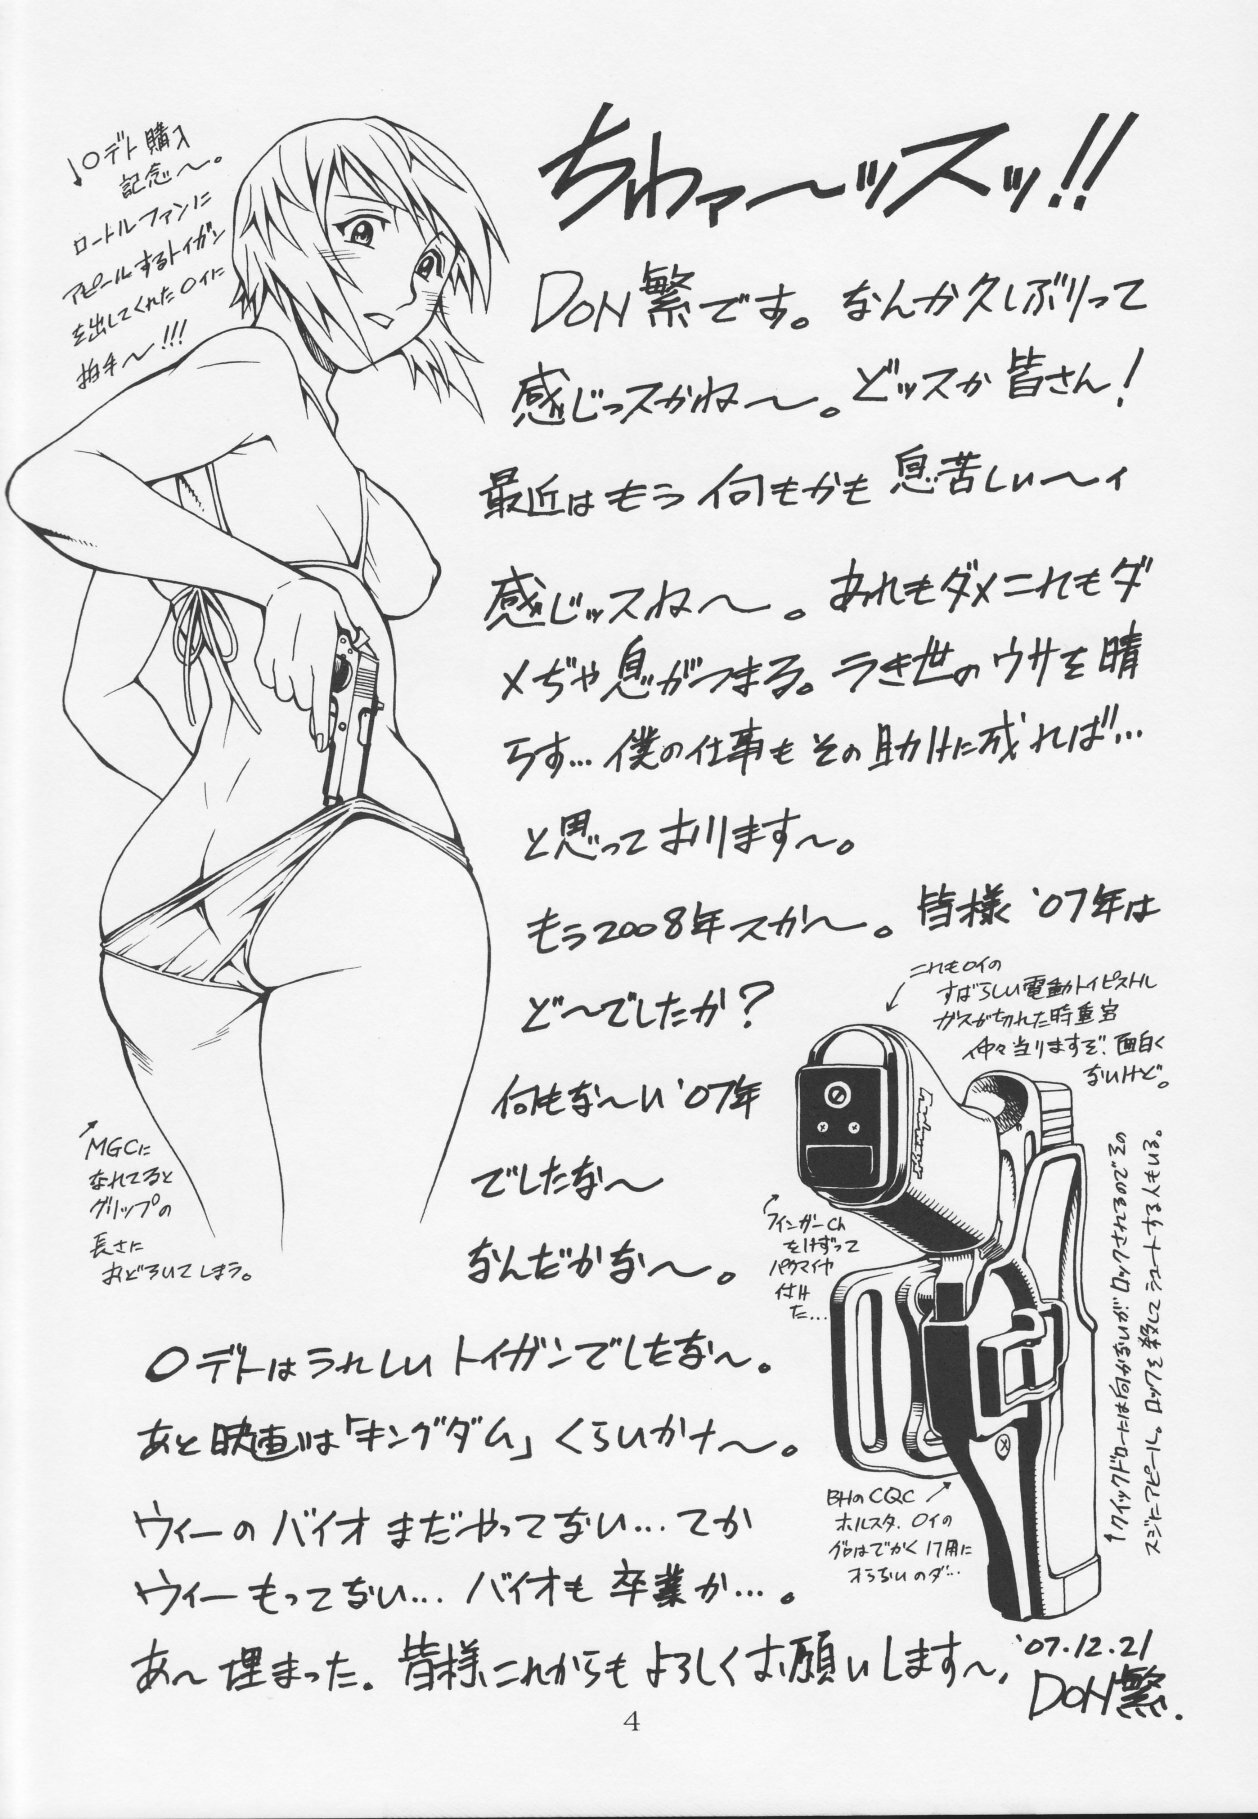 ちわァ〜ッスッ!!
DON繁です。なんか久しぶりって
感じっスかね〜。どッスか皆さん!
最近はもう何もかも息苦しい〜ィ
感じッスね〜。あれもダメこれもダ
メぢゃ息がつまる。うき世のウサを晴
らす…僕の仕事もその助けに成れば…
と思っております〜。
もう2008年スか〜。皆様'07年は
ど〜でしたか?
何もな〜い'07年
でしたな〜
なんだかな〜。
〇デトはうれしいトイガンでしたな〜。
あと映画は「キングダム」くらいかナ〜。
ウィーのバイオまだやってない…てか
ウィーもってない…バイオも卒業か…。
あ〜埋まった。皆様これからもよろしくお願いします〜。
'07.12.21
DON繁.
↓〇デト購入
記念〜。
ロートルファンに
アピールするトイガン
を出してくれた〇イに
拍手〜!!!
↗
MGCに
なれてると
グリップの
長さに
おどろいてしまう。
これも〇イの
すばらしい電動トイピストル
ガスが切れた時重宝
仲々当りますぞ、面白く
ないけど。
フィンガーCh
をけずって
付け
た…
↑クイックドローには向かないが、ロックされるのでその
スジにアピール。ロックを殺してシュートする人もいる。
BHのCQC
ホルスタ、〇イの
グロはでかく17用に